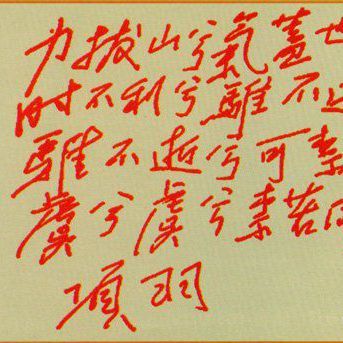 力拔山兮氣蓋世
时不利兮騅不
騅不逝兮可奈
虞兮虞兮奈若
項羽